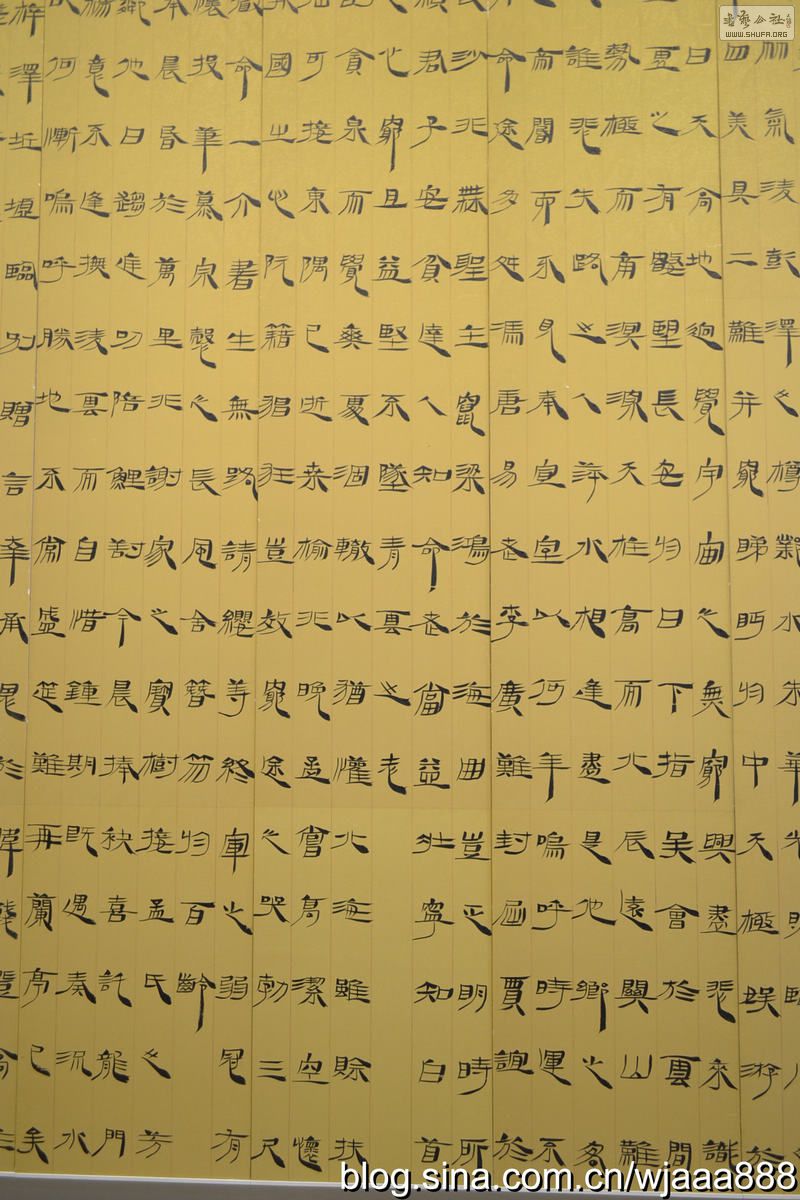 書藝公社
WWW.SHUFA.ORG
氣淩彭澤之樽鄴水朱華光照臨川
四美具二難并窮睇眄於中天極娛遊於
日天高地迥覺宇宙之無窮興盡悲來識
虛之有數望長安於日下指吳會於雲間
勢極而南溟深天柱高而北辰遠關山難
誰悲失路之人萍水相逢盡是他鄉之客
帝閽而不見奉宣室以何年嗚呼時運不
命途多舛馮唐易老李廣難封屈賈誼於
沙非無聖主竄梁鴻於海曲豈乏明時所
君子安貧達人知命老當益壯寧知白首
心窮且益堅不墜青雲之志
貪泉而覺爽處涸轍以猶懽北海雖賒扶
可接東隅已逝桑榆非晚孟嘗高潔空懷
國之心阮籍猖狂豈效窮途之哭勃三尺
命一介書生無路請纓等終軍之弱冠有
投筆慕宗愨之長風舍簪笏於百齡
晨昏於萬里非謝家之寶樹接孟氏之芳
他日趨庭叨陪鯉對今晨捧袂喜託龍門
意不逢撫淩雲而自惜鍾期既遇奏流水
何慚嗚呼勝地不常盛筵難再蘭亭已矣
梓澤丘墟臨別贈言幸承恩於偉餞登高
blog.sina.com.cn/wjaaa888